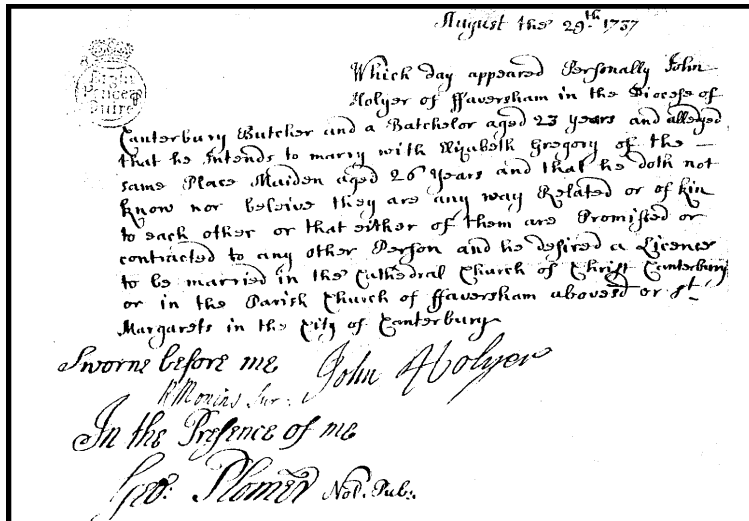 August the 29th 1737
Eight
Pence p
Quire
Which day appeared Personally John
Holyer of ffaversham in the Diocese of
Canterbury Butcher and a Batchelor aged 23 years and alledged
that he Intends to marry with Elizabeth Gregory of the
same Place Maiden aged 26 Years and that he doth not
know nor beleive they are any way Related or of kin
to each other or that either of them are Promised or
contracted to any other Person and he desired a Licence
to be married in the Cathedral Church of Christ Canterbury
or in the Parish Church of ffaversham abovesd or St
Margarets in the City of Canterbury
Sworne before me John Holyer
R Monins Sur:
In the Presence of me
Geo: Plomer Not. Pub: